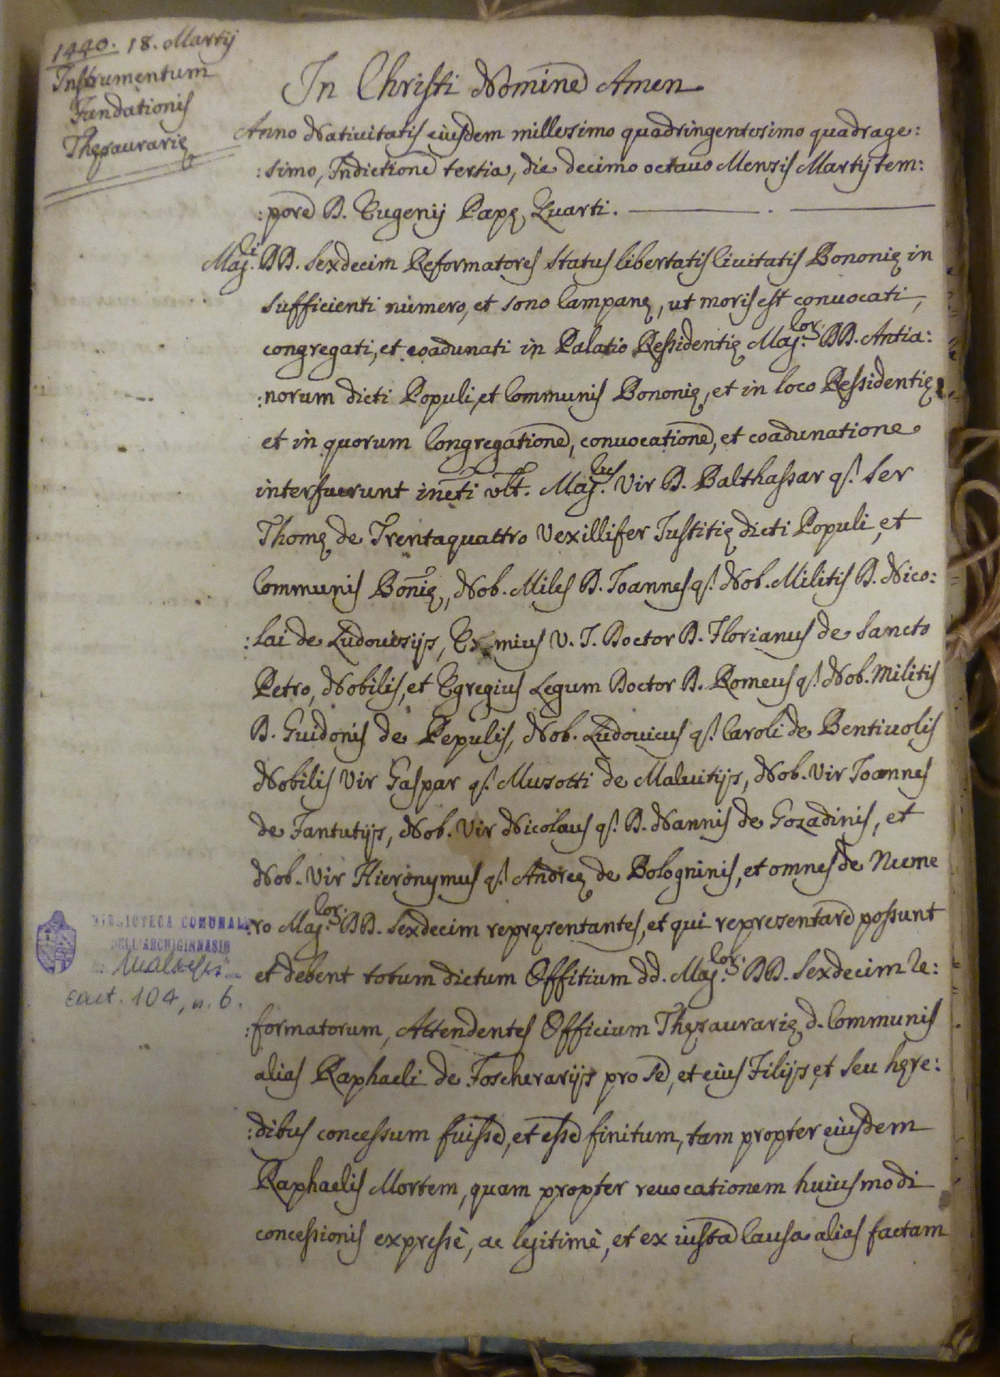 1440. 18. Martij
Instrumentum
Fundationis
Thęsaurarię
In Christi Nomine Amen
Anno Nativitatis eiusdem millesimo quadringentesimo quadrage:
:simo, Indictione tertia, die decimo octavo Mensis Martij tem:
:pore D. Eugenij Papę Quarti.
Mag.ci DD. Sexdecim Reformatores Status libertatis Civitatis Bononię in
sufficienti numero, et sono Campanę, ut moris est convocati,
congregati, et coadunati in Palatio Ressidentię Mag.cor. DD. Antia:
:norum dicti Populi, et Communis Bononię, et in loco Ressidentię,
et in quorum Congregatione, convocatione, et coadunatione
interfuerunt Mag.cus Vir D. Balthassar qs. Ser
Thomę de Trentaquattro Vexillifer Iustitię dicti Populi, et
Communis Bonię, Nob. Miles D. Joannes qs. Nob. Militis D. Nico:
:lai de Ludovisijs, Eximius V. J. Doctor D. Florianus de Sancto
Petro, Nobilis, et Egregius Legum Doctor D. Romeus qs. Nob. Militis
D. Guidonis de Pepulis, Nob. Ludovicus qs. Caroli de Bentivolis
Nobilis Vir Gaspar qs. Musotti de Malvitijs, Nob. Vir Joannes
de Fantutijs, Nob. Vir Nicolaus qs. D. Nannis de Gozadinis, et
Nob. Vir Hieronymus qs. Andreę de Bologninis, et omnes de Nume
ro Mag.cor. DD. Sexdecim repręsentantes, et qui repręsentare possunt
et debent totum dictum Offitium dd. Mag.cor. DD. Sexdecim Re:
:formatorum, Attendentes Officium Thęsaurarię d. Communis
alias Raphaeli de Foscherarijs pro se, et eius Filijs, et seu hęre:
:dibus concessum fuisse, et esse finitum, tam propter eiusdem
Raphaelis Mortem, quam propter revocationem huiusmodi
concessionis expressè, ac legitimè, et ex iusta Causa alias factam
BIBLIOTECA COMUNALE
DELL'ARCHIGINNASIO
Malvezzi
cart. 104, n. 6.